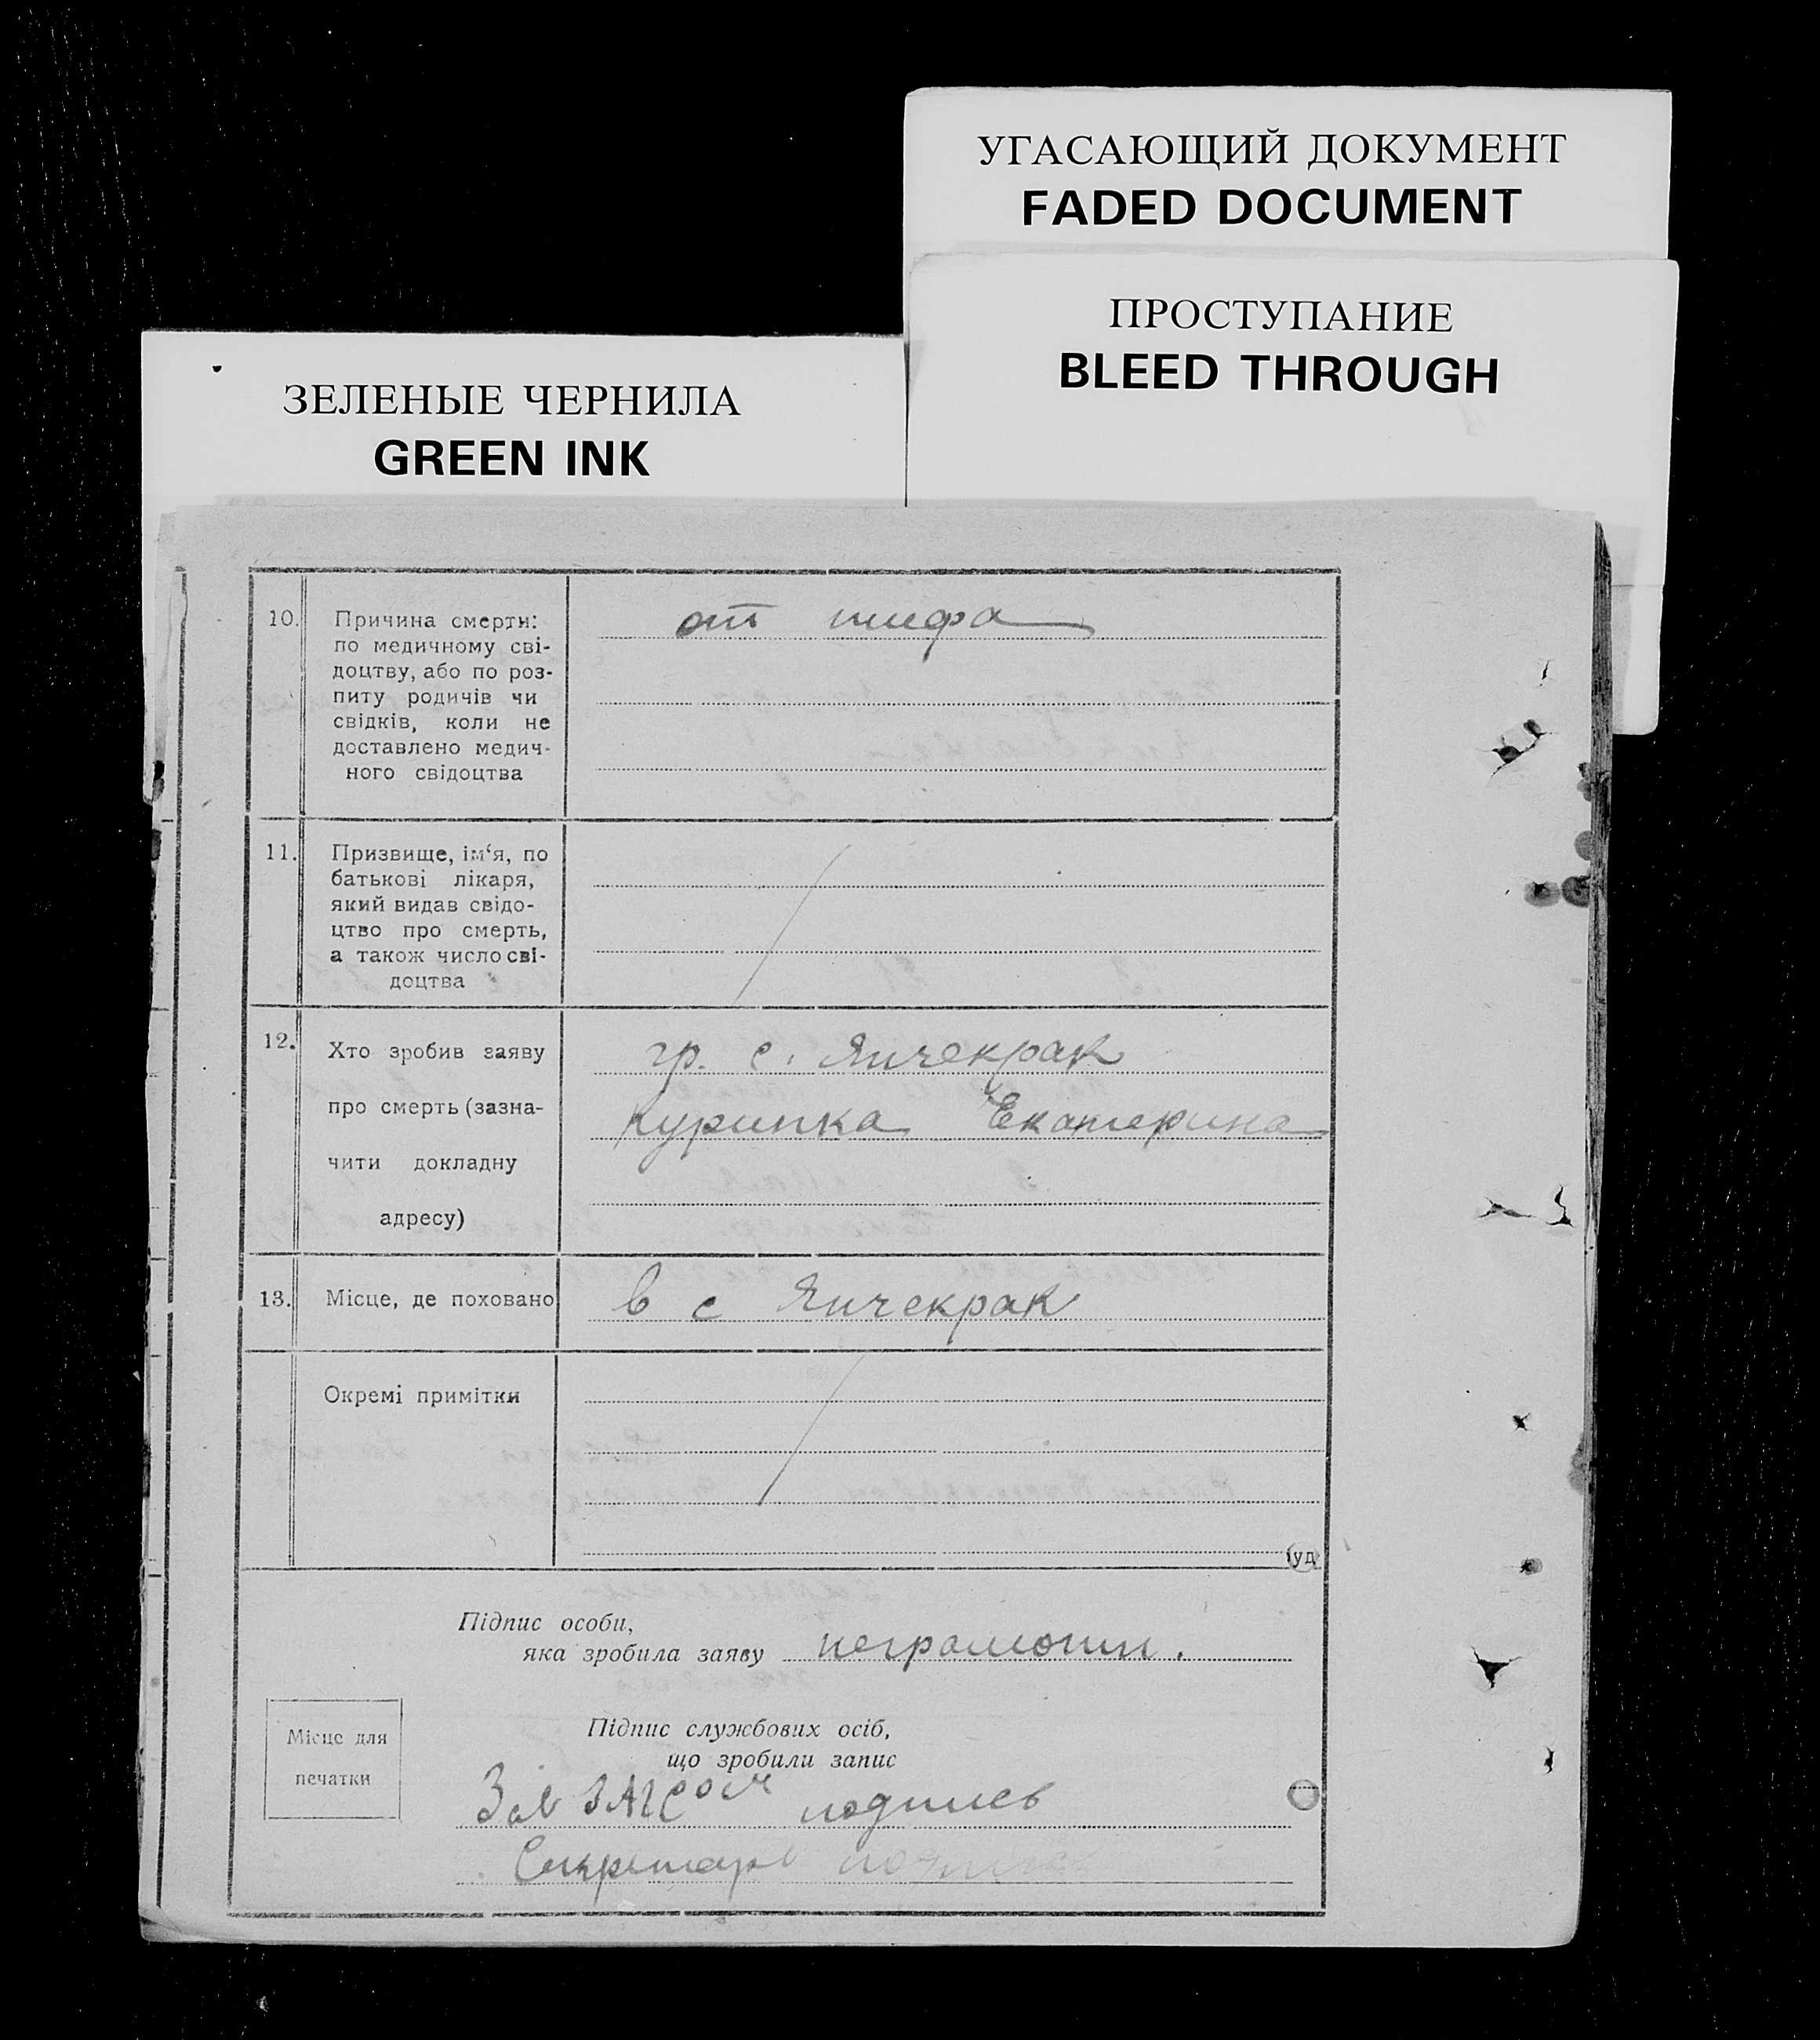 УГАСАЮЩИЙ ДОКУМЕНТ
FADED DOCUMENT
ПРОСТУПАНИЕ
BLEED THROUGH
ЗЕЛЕНЫЕ ЧЕРНИЛА
GREEN INK
10. Причина смерти:
по медичному сві-
доцтву, або по роз-
питу родичів чи
свідків, коли не
доставлено медич-
ного свідоцтва
от тифа
11. Призвище, ім‘я, по
батькові лікаря,
який видав свідо-
цтво про смерть,
а також число сві-
доцтва
12. Хто зробив заяву
про смерть (зазна-
чити докладну
адресу)
гр. с. Янчекрак
Курипка Екатерина
13. Місце, де поховано
в с Янчекрак
Окремі примітки
Підпис особи,
яка зробила заяву неграмотн.
Місце для
печатки
Підпис службових осіб,
що зробили запис
Зав ЗАГСом подпись
Секретарь подпись